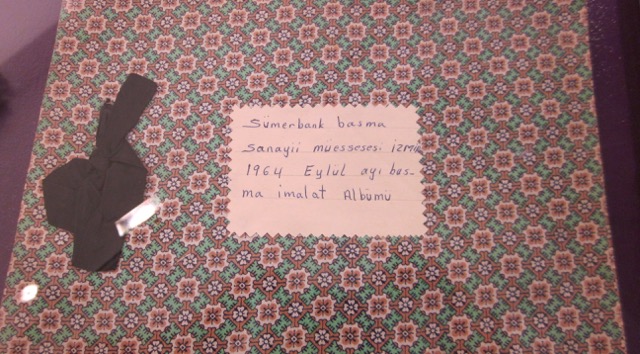 Sümerbank basma
Sanayii müessesesi İZMİR
1964 Eylül ayı bas-
ma imalat Albümü